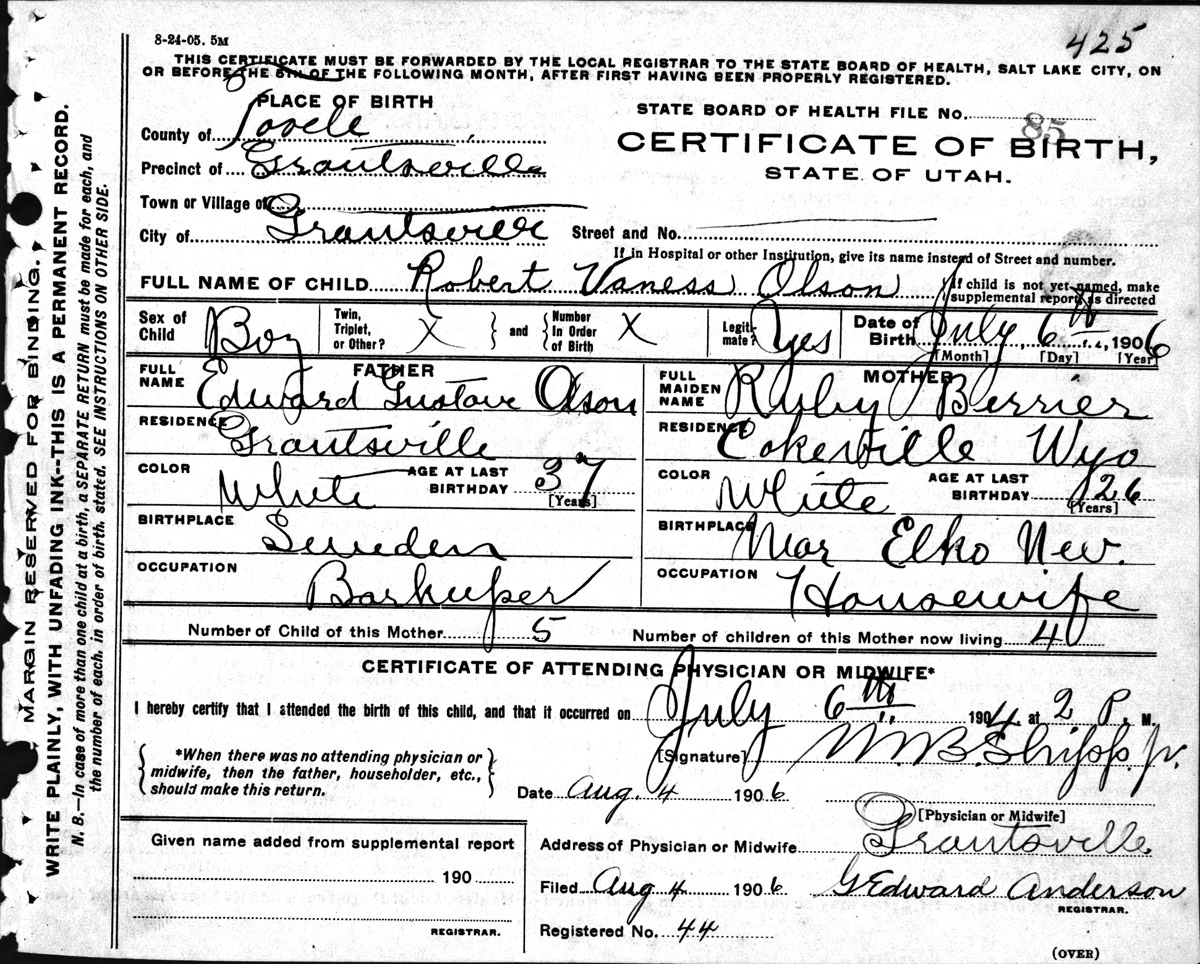 8-24-05. 5M
425
THIS CERTIFICATE MUST BE FORWARDED BY THE LOCAL REGISTRAR TO THE STATE BOARD OF HEALTH, SALT LAKE CITY, ON
OR BEFORE THE 5TH OF THE FOLLOWING MONTH, AFTER FIRST HAVING BEEN PROPERLY REGISTERED.
PLACE OF BIRTH
STATE BOARD OF HEALTH FILE No. 85
County of Tooele
CERTIFICATE OF BIRTH,
Precinct of Grantsville
STATE OF UTAH.
Town or Village of
City of Grantsville Street and No.
If in Hospital or other Institution, give its name instead of Street and number.
FULL NAME OF CHILD Robert Vaness Olson
If child is not yet named, make
supplemental report as directed
Sex of Child Boy
Twin, Triplet, or Other? X and Number In Order of Birth X
Legitimate? Yes
Date of Birth July 6th, 1906
[Month] [Day] [Year]
FATHER
FULL NAME Edward Gustave Olson
RESIDENCE Grantsville
COLOR White AGE AT LAST BIRTHDAY 37 [Years]
BIRTHPLACE Sweden
OCCUPATION Barkeeper
MOTHER
FULL MAIDEN NAME Ruby Berrier
RESIDENCE Cokeville Wyo
COLOR White AGE AT LAST BIRTHDAY 26 [Years]
BIRTHPLACE Near Elko Nev.
OCCUPATION Housewife
Number of Child of this Mother 5 Number of children of this Mother now living 4
CERTIFICATE OF ATTENDING PHYSICIAN OR MIDWIFE*
I hereby certify that I attended the birth of this child, and that it occurred on July 6th 1904. at 2 P. M.
*When there was no attending physician or
midwife, then the father, householder, etc.,
should make this return.
[Signature]
Date Aug. 4 1906
[Physician or Midwife]
Given name added from supplemental report
190
REGISTRAR.
Address of Physician or Midwife Grantsville
Filed Aug 4 1906 G Edward Anderson
REGISTRAR.
Registered No. 44
(OVER)
MARGIN RESERVED FOR BINDING.
WRITE PLAINLY, WITH UNFADING INK--THIS IS A PERMANENT RECORD.
N. B.—In case of more than one child at a birth, a SEPARATE RETURN must be made for each, and
the number of each, in order of birth, stated. SEE INSTRUCTIONS ON OTHER SIDE.